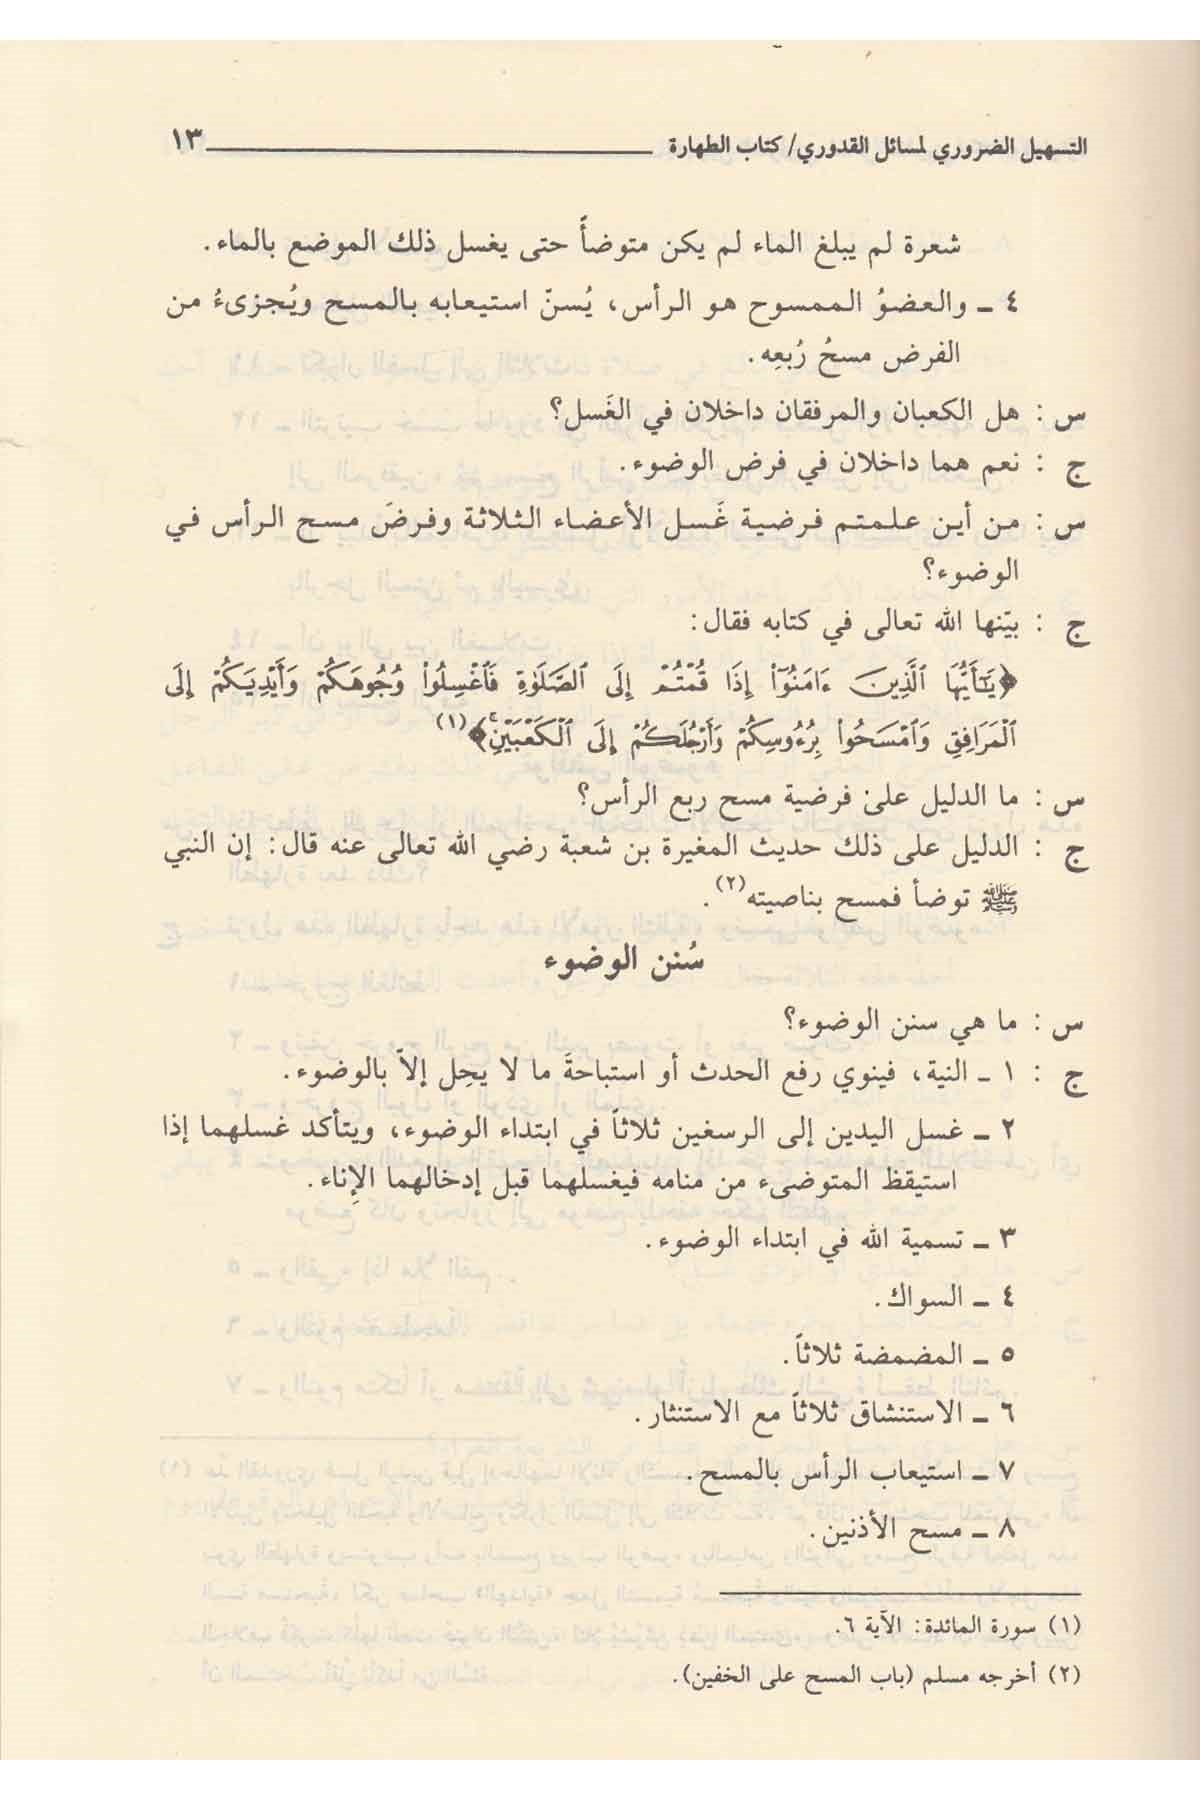 التسهيل الضروري لمسائل القدوري/ كتاب الطهارة ١٣
شعرة لم يبلغ الماء لم يكن متوضأً حتى يغسل ذلك الموضع بالماء.
٤ ـ والعضوُ الممسوح هو الرأس، يُسنّ استيعابه بالمسح ويُجزىءُ من
الفرض مسحُ رُبعِه.
س : هل الكعبان والمرفقان داخلان في الغَسل؟
ج : نعم هما داخلان في فرض الوضوء.
س : من أين علمتم فرضية غَسل الأعضاء الثلاثة وفرضَ مسح الرأس في
الوضوء؟
ج : بيّنها الله تعالى في كتابه فقال:
﴿يَٰٓأَيُّهَا ٱلَّذِينَ ءَامَنُوٓا۟ إِذَا قُمْتُمْ إِلَى ٱلصَّلَوٰةِ فَٱغْسِلُوا۟ وُجُوهَكُمْ وَأَيْدِيَكُمْ إِلَى
ٱلْمَرَافِقِ وَٱمْسَحُوا۟ بِرُءُوسِكُمْ وَأَرْجُلَكُمْ إِلَى ٱلْكَعْبَيْنِ ۚ﴾(١)
س : ما الدليل على فرضية مسح ربع الرأس؟
ج : الدليل على ذلك حديث المغيرة بن شعبة رضي الله تعالى عنه قال: إن النبي
ﷺ توضأ فمسح بناصيته(٢).
سُنن الوضوء
س : ما هي سنن الوضوء؟
ج : ١ ـ النية، فينوي رفع الحدث أو استباحةَ ما لا يحِل إلاّ بالوضوء.
٢ ـ غسل اليدين إلى الرسغين ثلاثاً في ابتداء الوضوء، ويتأكد غسلهما إذا
استيقظ المتوضىء من منامه فيغسلهما قبل إدخالهما الإِناء.
٣ ـ تسمية الله في ابتداء الوضوء.
٤ ـ السواك.
٥ ـ المضمضة ثلاثاً.
٦ ـ الاستنشاق ثلاثاً مع الاستنثار.
٧ ـ استيعاب الرأس بالمسح.
٨ ـ مسح الأذنين.
(١) سورة المائدة: الآية ٦.
(٢) أخرجه مسلم (باب المسح على الخفين).